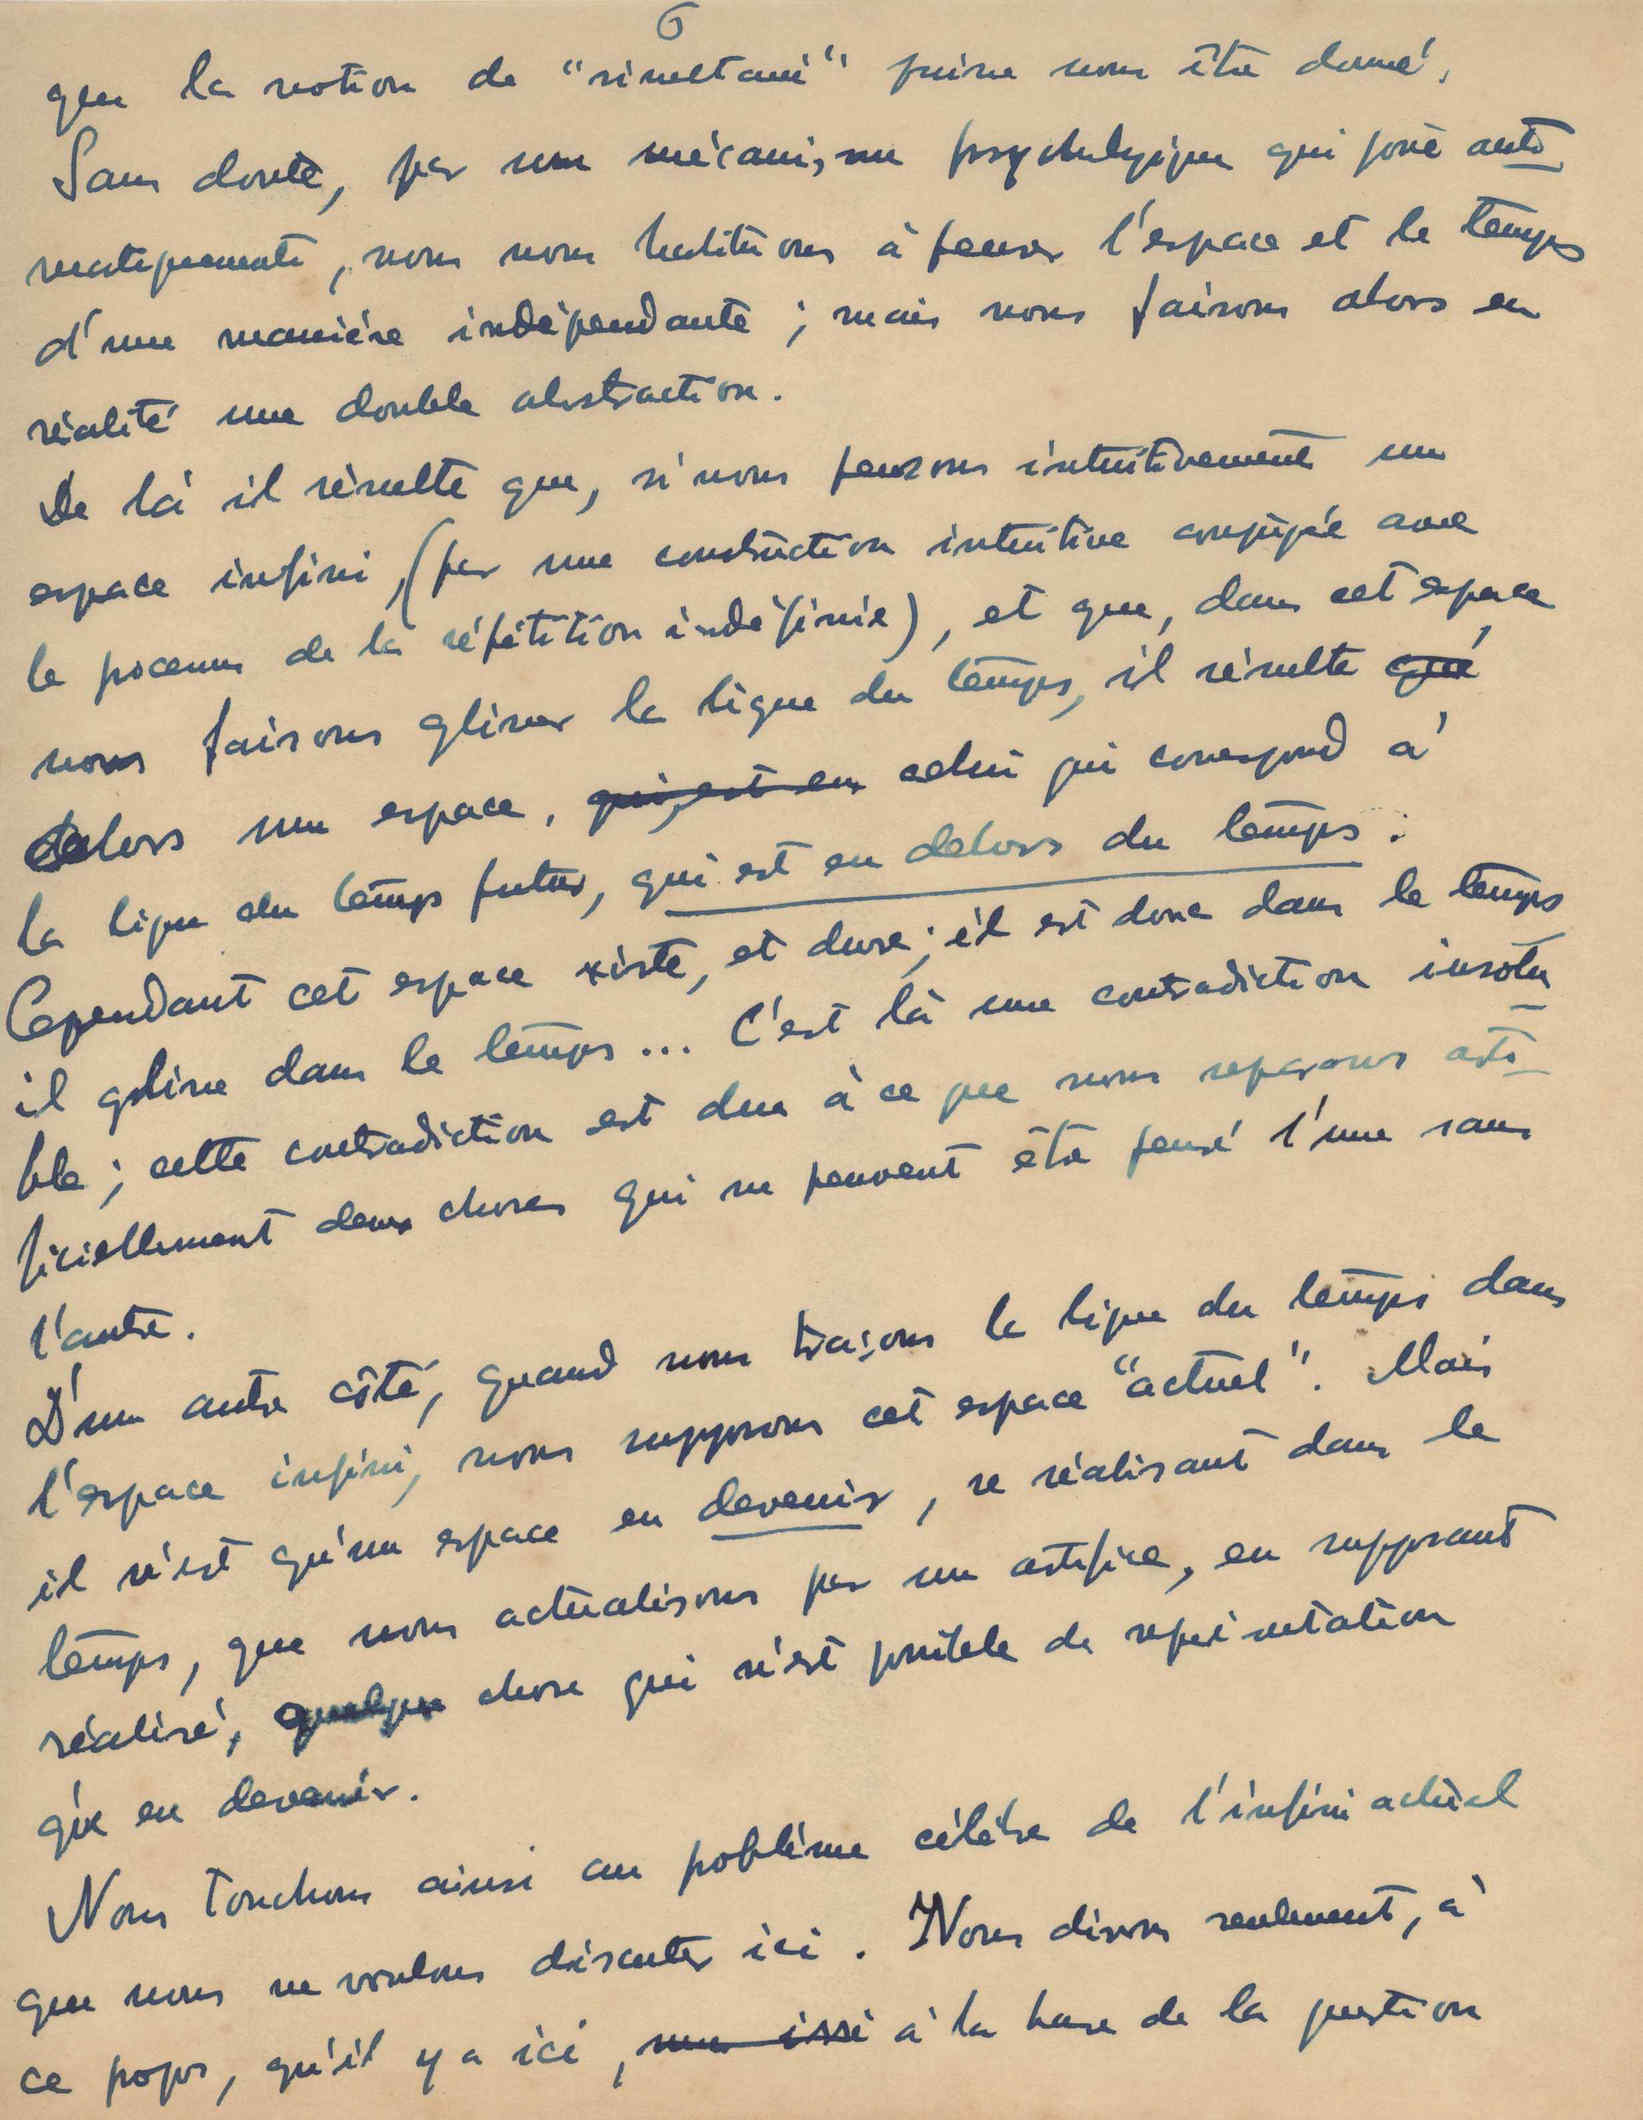 6
que la notion de "simultané" puisse nous être donné.
Sans doute, par un mécanisme psychologique qui joue auto
matiquement, nous nous habituons à penser l'espace et le temps
d'une manière indépendante ; mais nous faisons alors en
réalité une double abstraction.
De là il résulte que, si nous pensons intuitivement un
espace infini, (par une construction intuitive conjugée avec
le processus de la répétition indéfinie), et que, dans cet espace
nous faisons glisser la ligne du temps, il résulte que
alors un espace, qui, est en celui qui correspond à
la ligne du temps futur, qui est en dehors du temps.
Cependant cet espace existe, et dure ; il est donc dans le temps
il glisse dans le temps ... C'est là une contradiction insolu
ble ; cette contradiction est due à ce que nous separons arti
ficiellement deux choses qui ne peuvent être pensé l'une sans
l'autre.
D'un autre côté, quand nous traçons la ligne du temps dans
l'espace infini, nous supposons cet espace "actuel". Mais
il n'est qu'un espace en devenir, se réalisant dans le
temps, que nous actualisons par un artifice, en supposant
réalisé, quelque chose qui n'est possible de représentation
q'ue en devenir.
Nous touchons ainsi au problème célèbre de l'infini actuel
que nous ne voulons discuter ici. Nous disons seulement, à
ce propos, qu'il y a ici, une issi à la base de la question